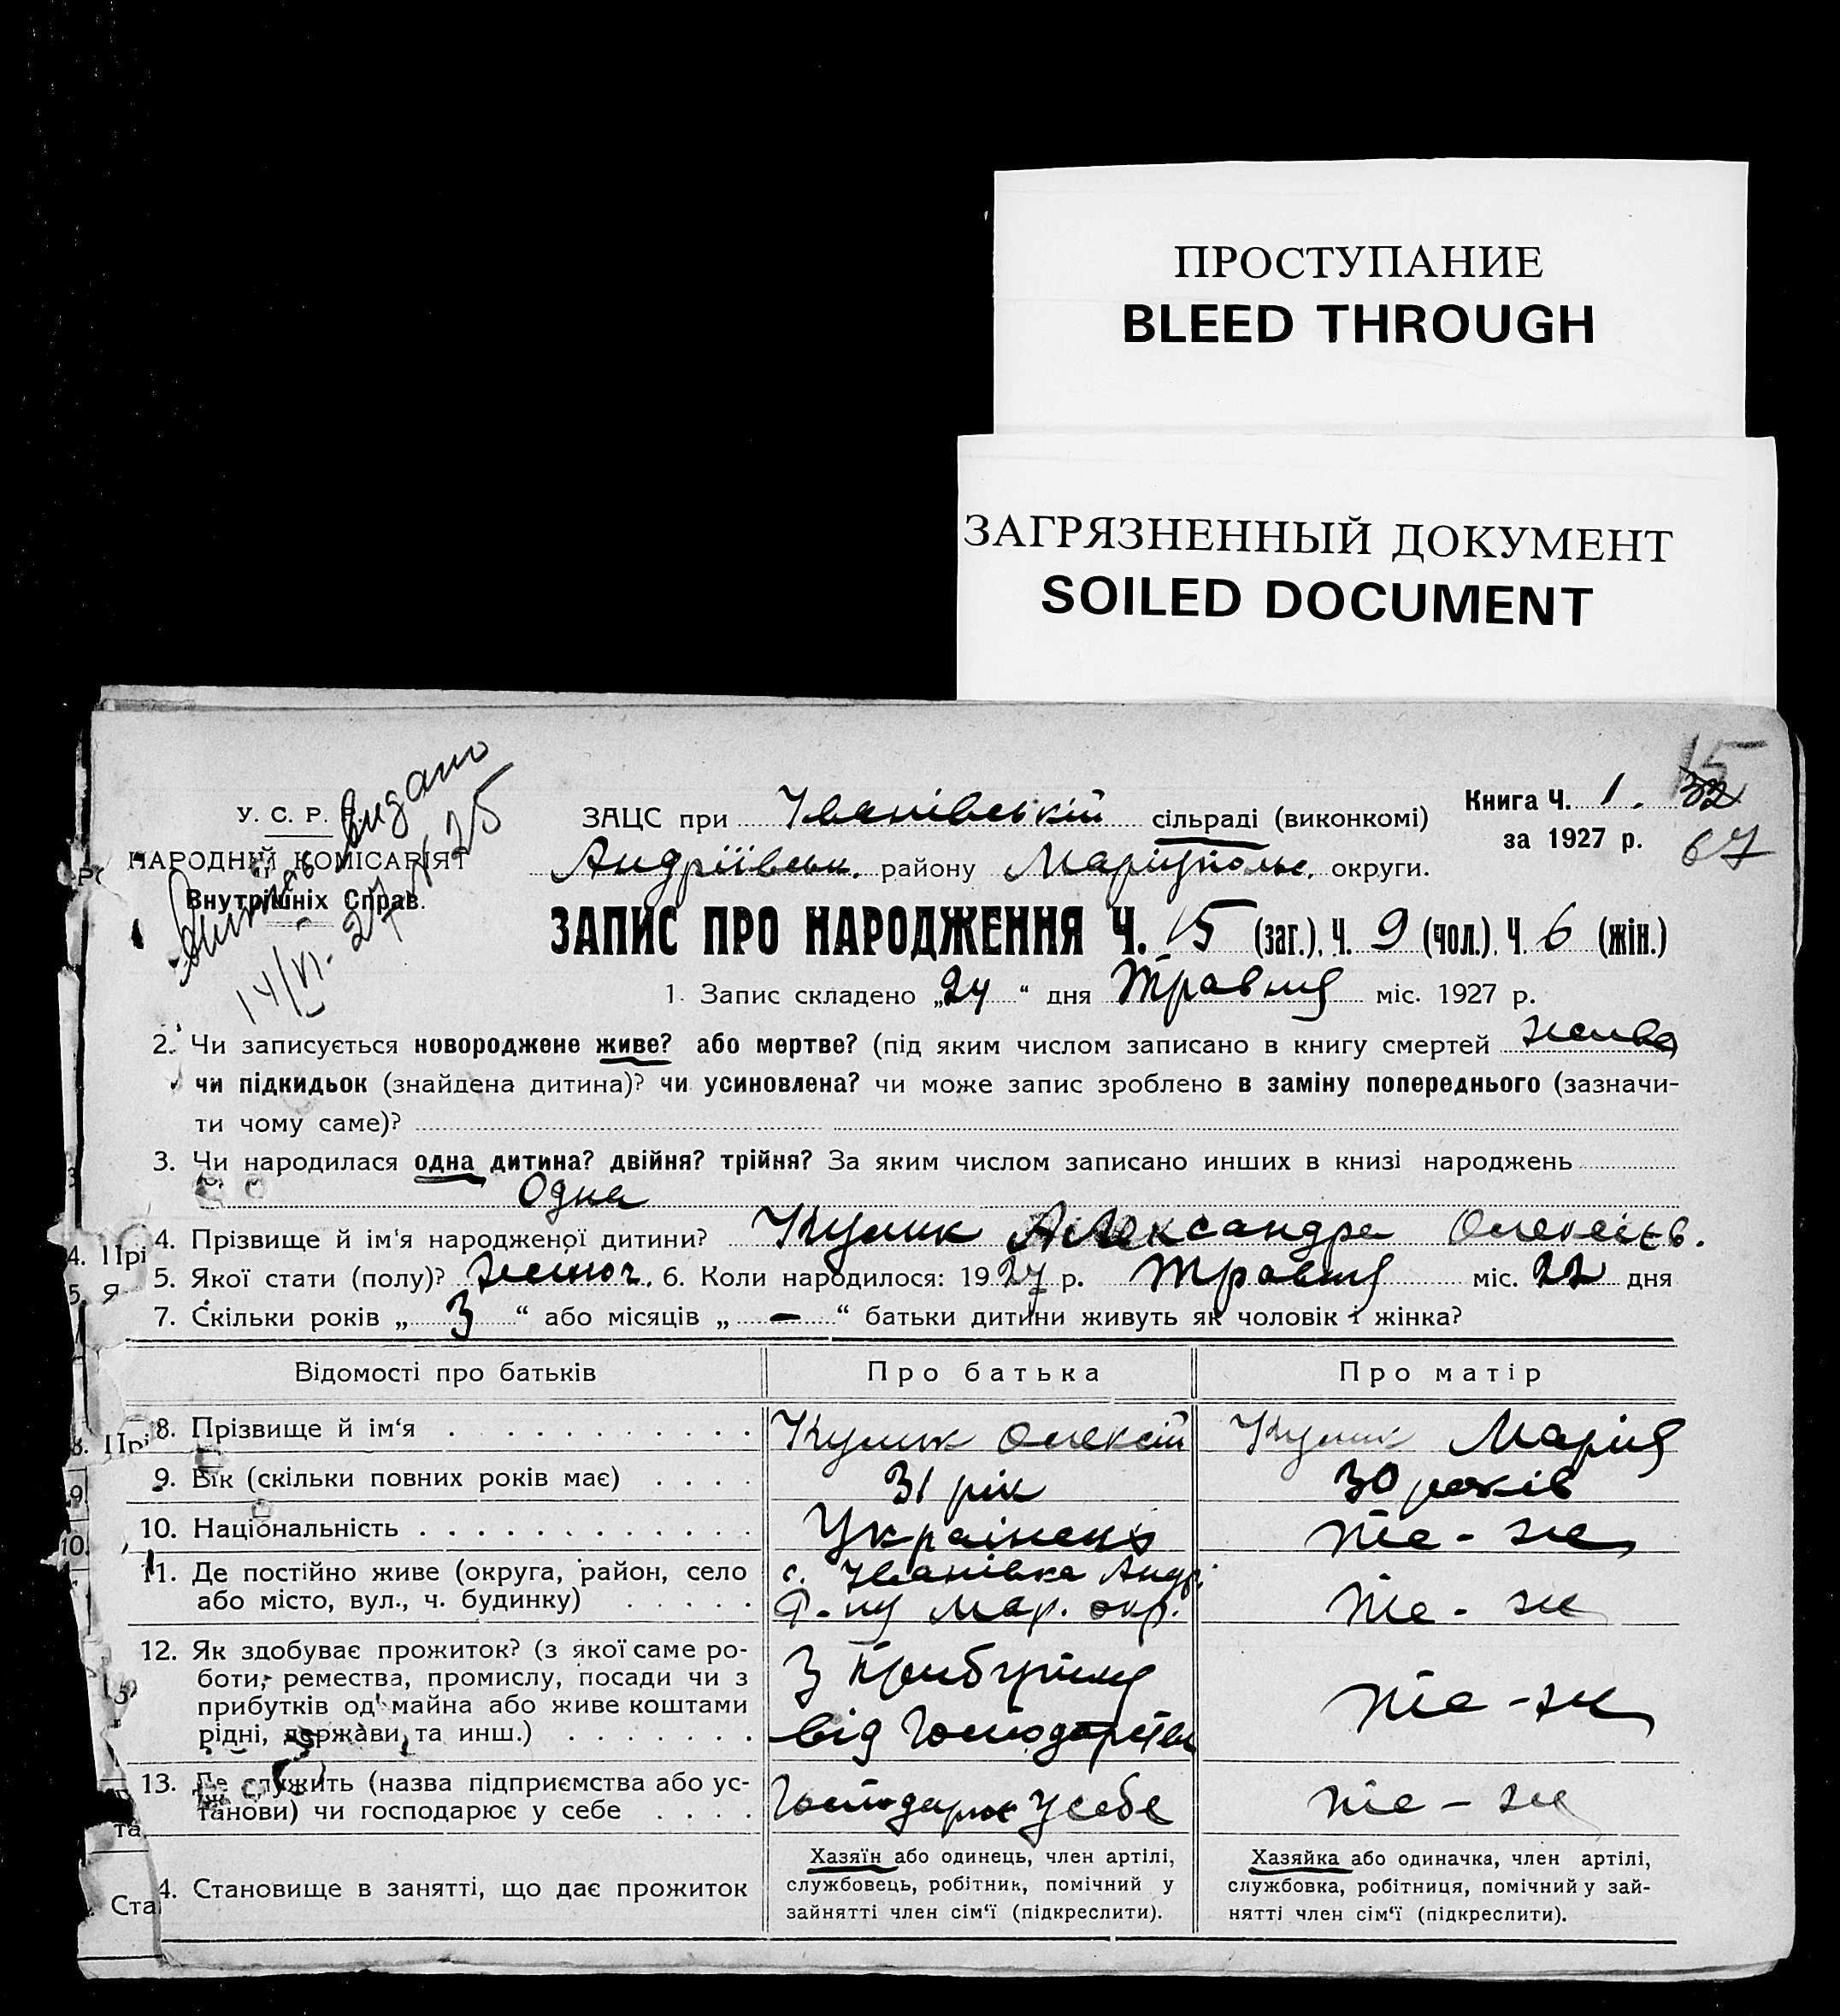 ПРОСТУПАНИЕ
BLEED THROUGH
ЗАГРЯЗНЕННЫЙ ДОКУМЕНТ
SOILED DOCUMENT
15
Книга Ч. 1. 32
за 1927 р. 67
У. С. Р. Р.
НАРОДНІЙ КОМІСАРІЯТ
Внутрішніх Справ.
видано
14/VI-27 № 25
ЗАЦС при Іванівській сільраді (виконкомі)
Андріївськ. району Маріюпольс. округи.
ЗАПИС ПРО НАРОДЖЕННЯ Ч. 15 (заг.), Ч. 9 (чол.), Ч. 6 (жін.)
1. Запис складено „24“ дня Травня міс. 1927 р.
2. Чи записується новороджене живе? або мертве? (під яким числом записано в книгу смертей живе
чи підкидьок (знайдена дитина)? чи усиновлена? чи може запис зроблено в заміну попереднього (зазначи-
ти чому саме)?
3. Чи народилася одна дитина? двійня? трійня? За яким числом записано инших в книзі народжень
Одна
4. Прізвище й ім‘я народженої дитини? Кулик Александра Олексієв.
5. Якої стати (полу)? жіноч. 6. Коли народилося: 1927 р. Травня міс. 22 дня
7. Скільки років „ 3 “ або місяців „ — “ батьки дитини живуть як чоловік і жінка?
Відомості про батьків Про батька Про матір
8. Прізвище й ім‘я Кулик Олексій Кулик Марія
9. Вік (скільки повних років має) 31 рік 30 років
10. Національність Українець те-ж
11. Де постійно живе (округа, район, село с. Іванівка Андр.
або місто, вул., ч. будинку) Р-ну Мар. окр. те-ж
12. Як здобуває прожиток? (з якої саме ро-
боти, ремества, промислу, посади чи з З прибутку
прибутків од майна або живе коштами те-ж
рідні, держави, та инш.) від господарства
13. Де служить (назва підприємства або ус-
танови) чи господарює у себе Господарює у себе те-ж
14. Становище в занятті, що дає прожиток
Хазяїн або одинець, член артілі,
службовець, робітник, помічний у
зайнятті член сім‘ї (підкреслити).
Хазяйка або одиначка, член артілі,
службовка, робітниця, помічний у зай-
нятті член сім‘ї (підкреслити).